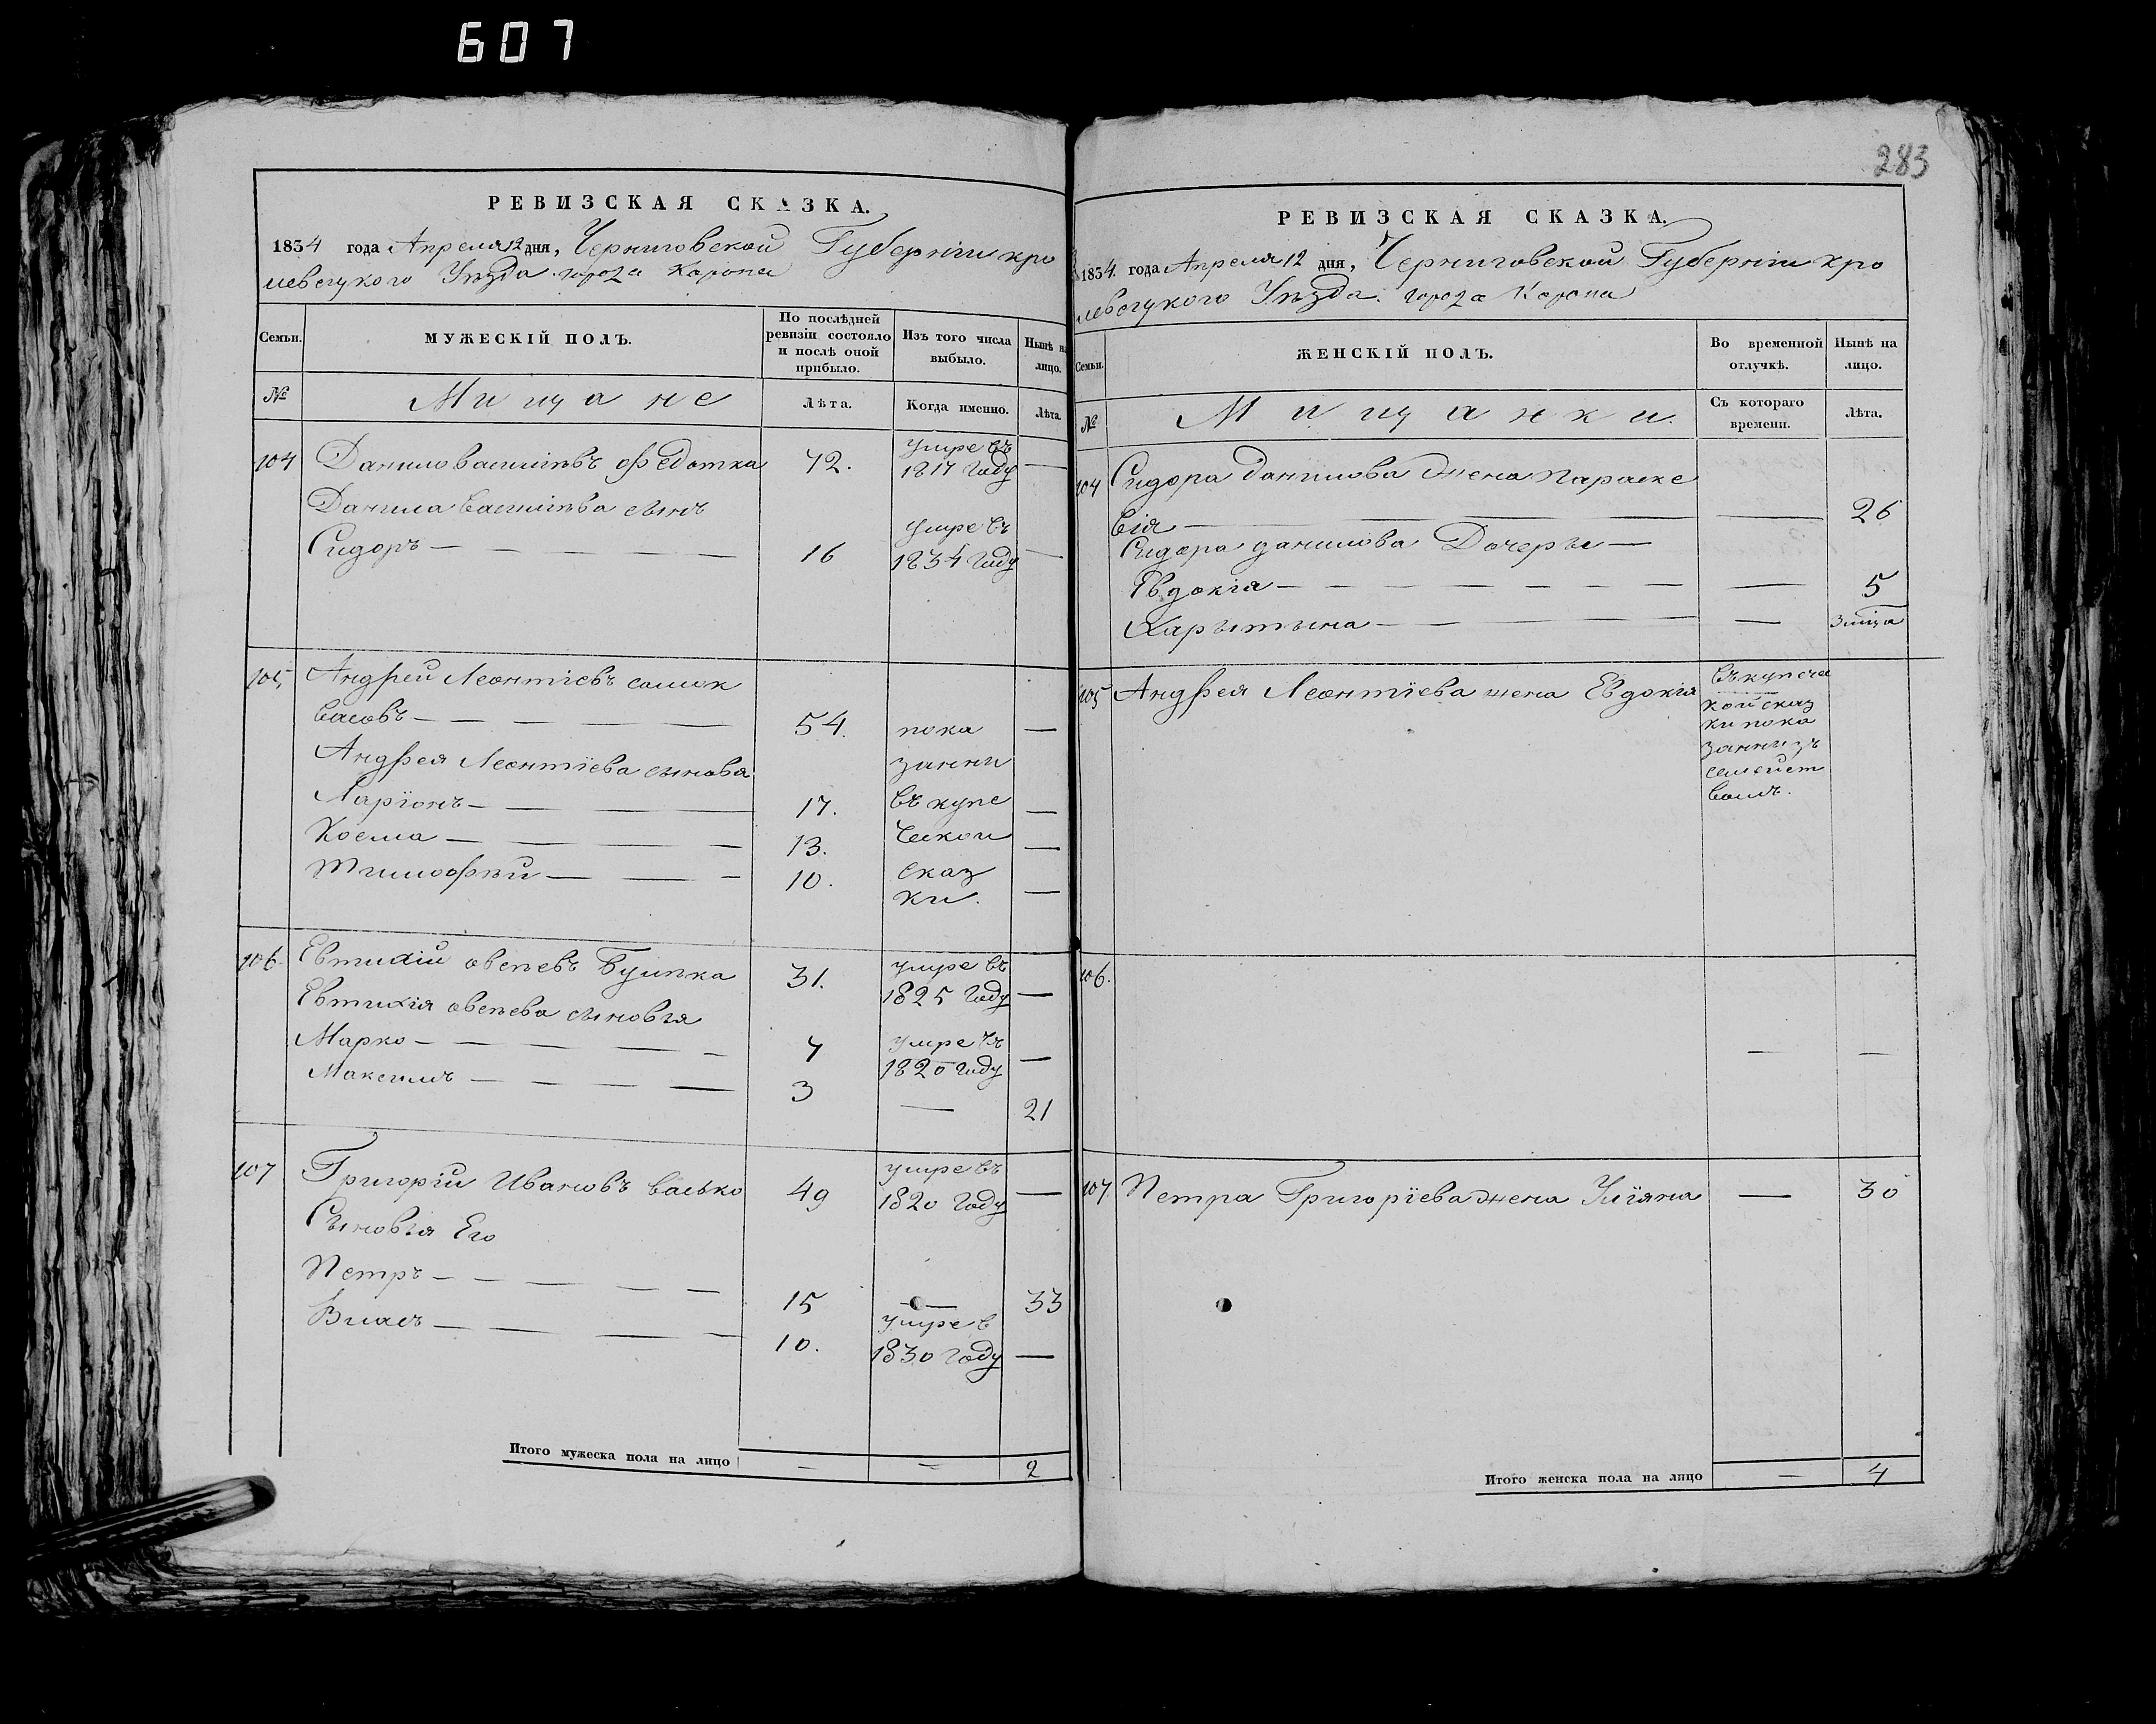 607
РЕВИЗСКАЯ СКАЗКА.
1834 года Апреля 12 дня, Черниговской Губерніи кро
левецкого Уѣзда города Коропа
Семьи.
МУЖЕСКІЙ ПОЛЪ.
По послѣдней ревизіи состояло и послѣ оной прибыло.
Изъ того числа выбыло.
Нынѣ на лицо.
№
Мищане
Лѣта.
Когда именно.
Лѣта.
104 Данило Василіевъ Федотка 72. умре въ 1817 году —
Данила Василіева сынъ
Сидоръ — 16 умре въ 1834 году —
105, Андрей Леонтіевъ самок
васовъ — 54. пока —
Андрея Леонтіева сыновья занни
Ларіонъ — 17. въ купе —
Косма — 13. ческой —
Тимофѣй — 10. сказ —
ки.
106. Евтихій Овсѣевъ 31. умре въ 1825 году —
Евтихія Овсѣева сыновья
Марко — 7 умре въ 1820 году —
Максимъ — 3 — 21
107 Григорій Ивановъ Васько 49 умре въ 1820 году —
Сыновья Его
Петръ — 15 — 33
Власъ — 10. умре в 1830 году —
Итого мужеска пола на лицо — — 2
283
РЕВИЗСКАЯ СКАЗКА.
1834. года Апреля 12 дня, Черниговской Губерніи кро
левецкого Уѣзда. города Коропа
Семьи.
ЖЕНСКІЙ ПОЛЪ.
Во временной отлучкѣ.
Нынѣ на лицо.
№
Мищанки.
Съ котораго времени.
Лѣта.
104 Сидора Данилова жена Параске
вія — — 26
Сидора Данилова Дочеры —
Евдокія — — 5
Харытына — — 3 мца
105 Андрея Леонтіева жена Евдокія
въ купече
кой сказ
ки пока
занни зъ
семейст
вомъ.
106. — —
107. Петра Григоріева жена Уліяна — 30
Итого женска пола на лицо — 4